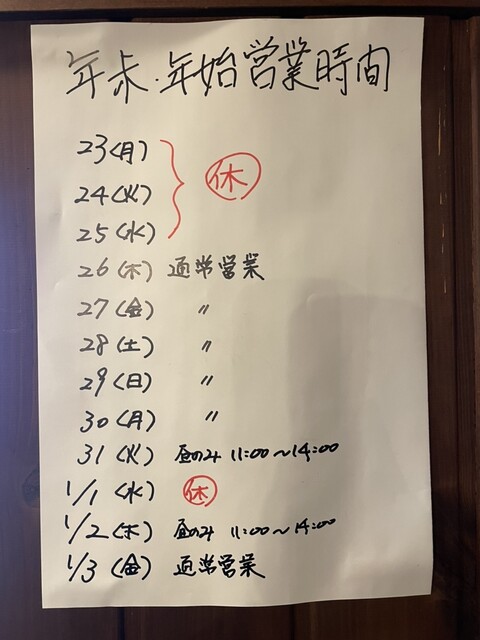 年末・年始営業時間
23(月)
24(火) 休
25(水)
26(木) 通常営業
27(金) 〃
28(土) 〃
29(日) 〃
30(月) 〃
31(火) 昼のみ 11:00〜14:00
1/1(水) 休
1/2(木) 昼のみ 11:00〜14:00
1/3(金) 通常営業